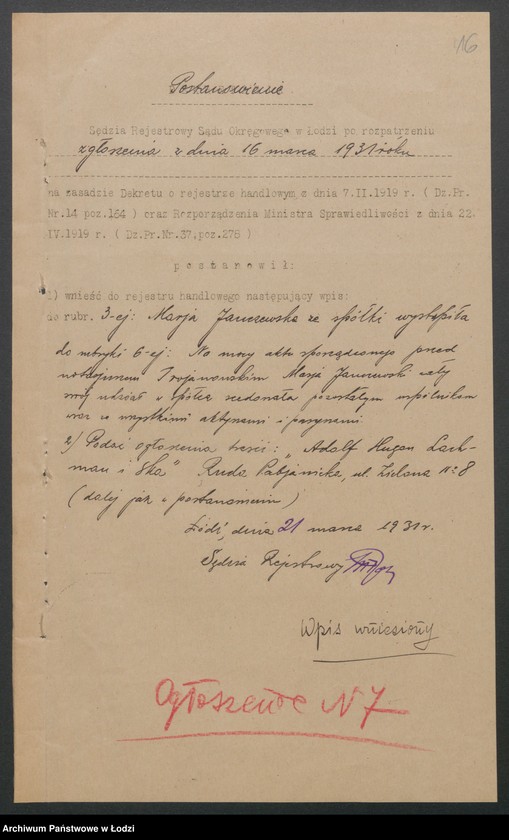 46
Postanowienie
Sędzia Rejestrowy Sądu Okręgowego w Łodzi po rozpatrzeniu
zgłoszenia z dnia 16 marca 1931 roku
na zasadzie Dekretu o rejestrze handlowym z dnia 7.II.1919 r. ( Dz.Pr.
Nr.14 poz.164 ) oraz Rozporządzenia Ministra Sprawiedliwości z dnia 22.
IV.1919 r. ( Dz.Pr.Nr.37.poz.278 )
postanowił:
1) wnieść do rejestru handlowego następujący wpis:
do rubr. 3-ej: Marja Janczewska ze spółki wystąpiła
do rubryki 6-ej: Na mocy aktu sporządzonego przed
notarjuszem Trojanowskim Marja Janczewska cały
swój udział w spółce scedowała pozostałym wspólnikom
wraz z wszystkimi aktywami i pasywami
2) Podać ogłoszenia treści: "Adolf Hugon Lach-
man i Ska" Ruda Pabjanicka, ul. Zielona No 8
(dalej jak w postanowieniu)
Łódź, dnia 21 marca 1931 r.
Sędzia Rejestrowy
Wpis wniesiony
Ogłoszenie N 7
Archiwum Państwowe w Łodzi